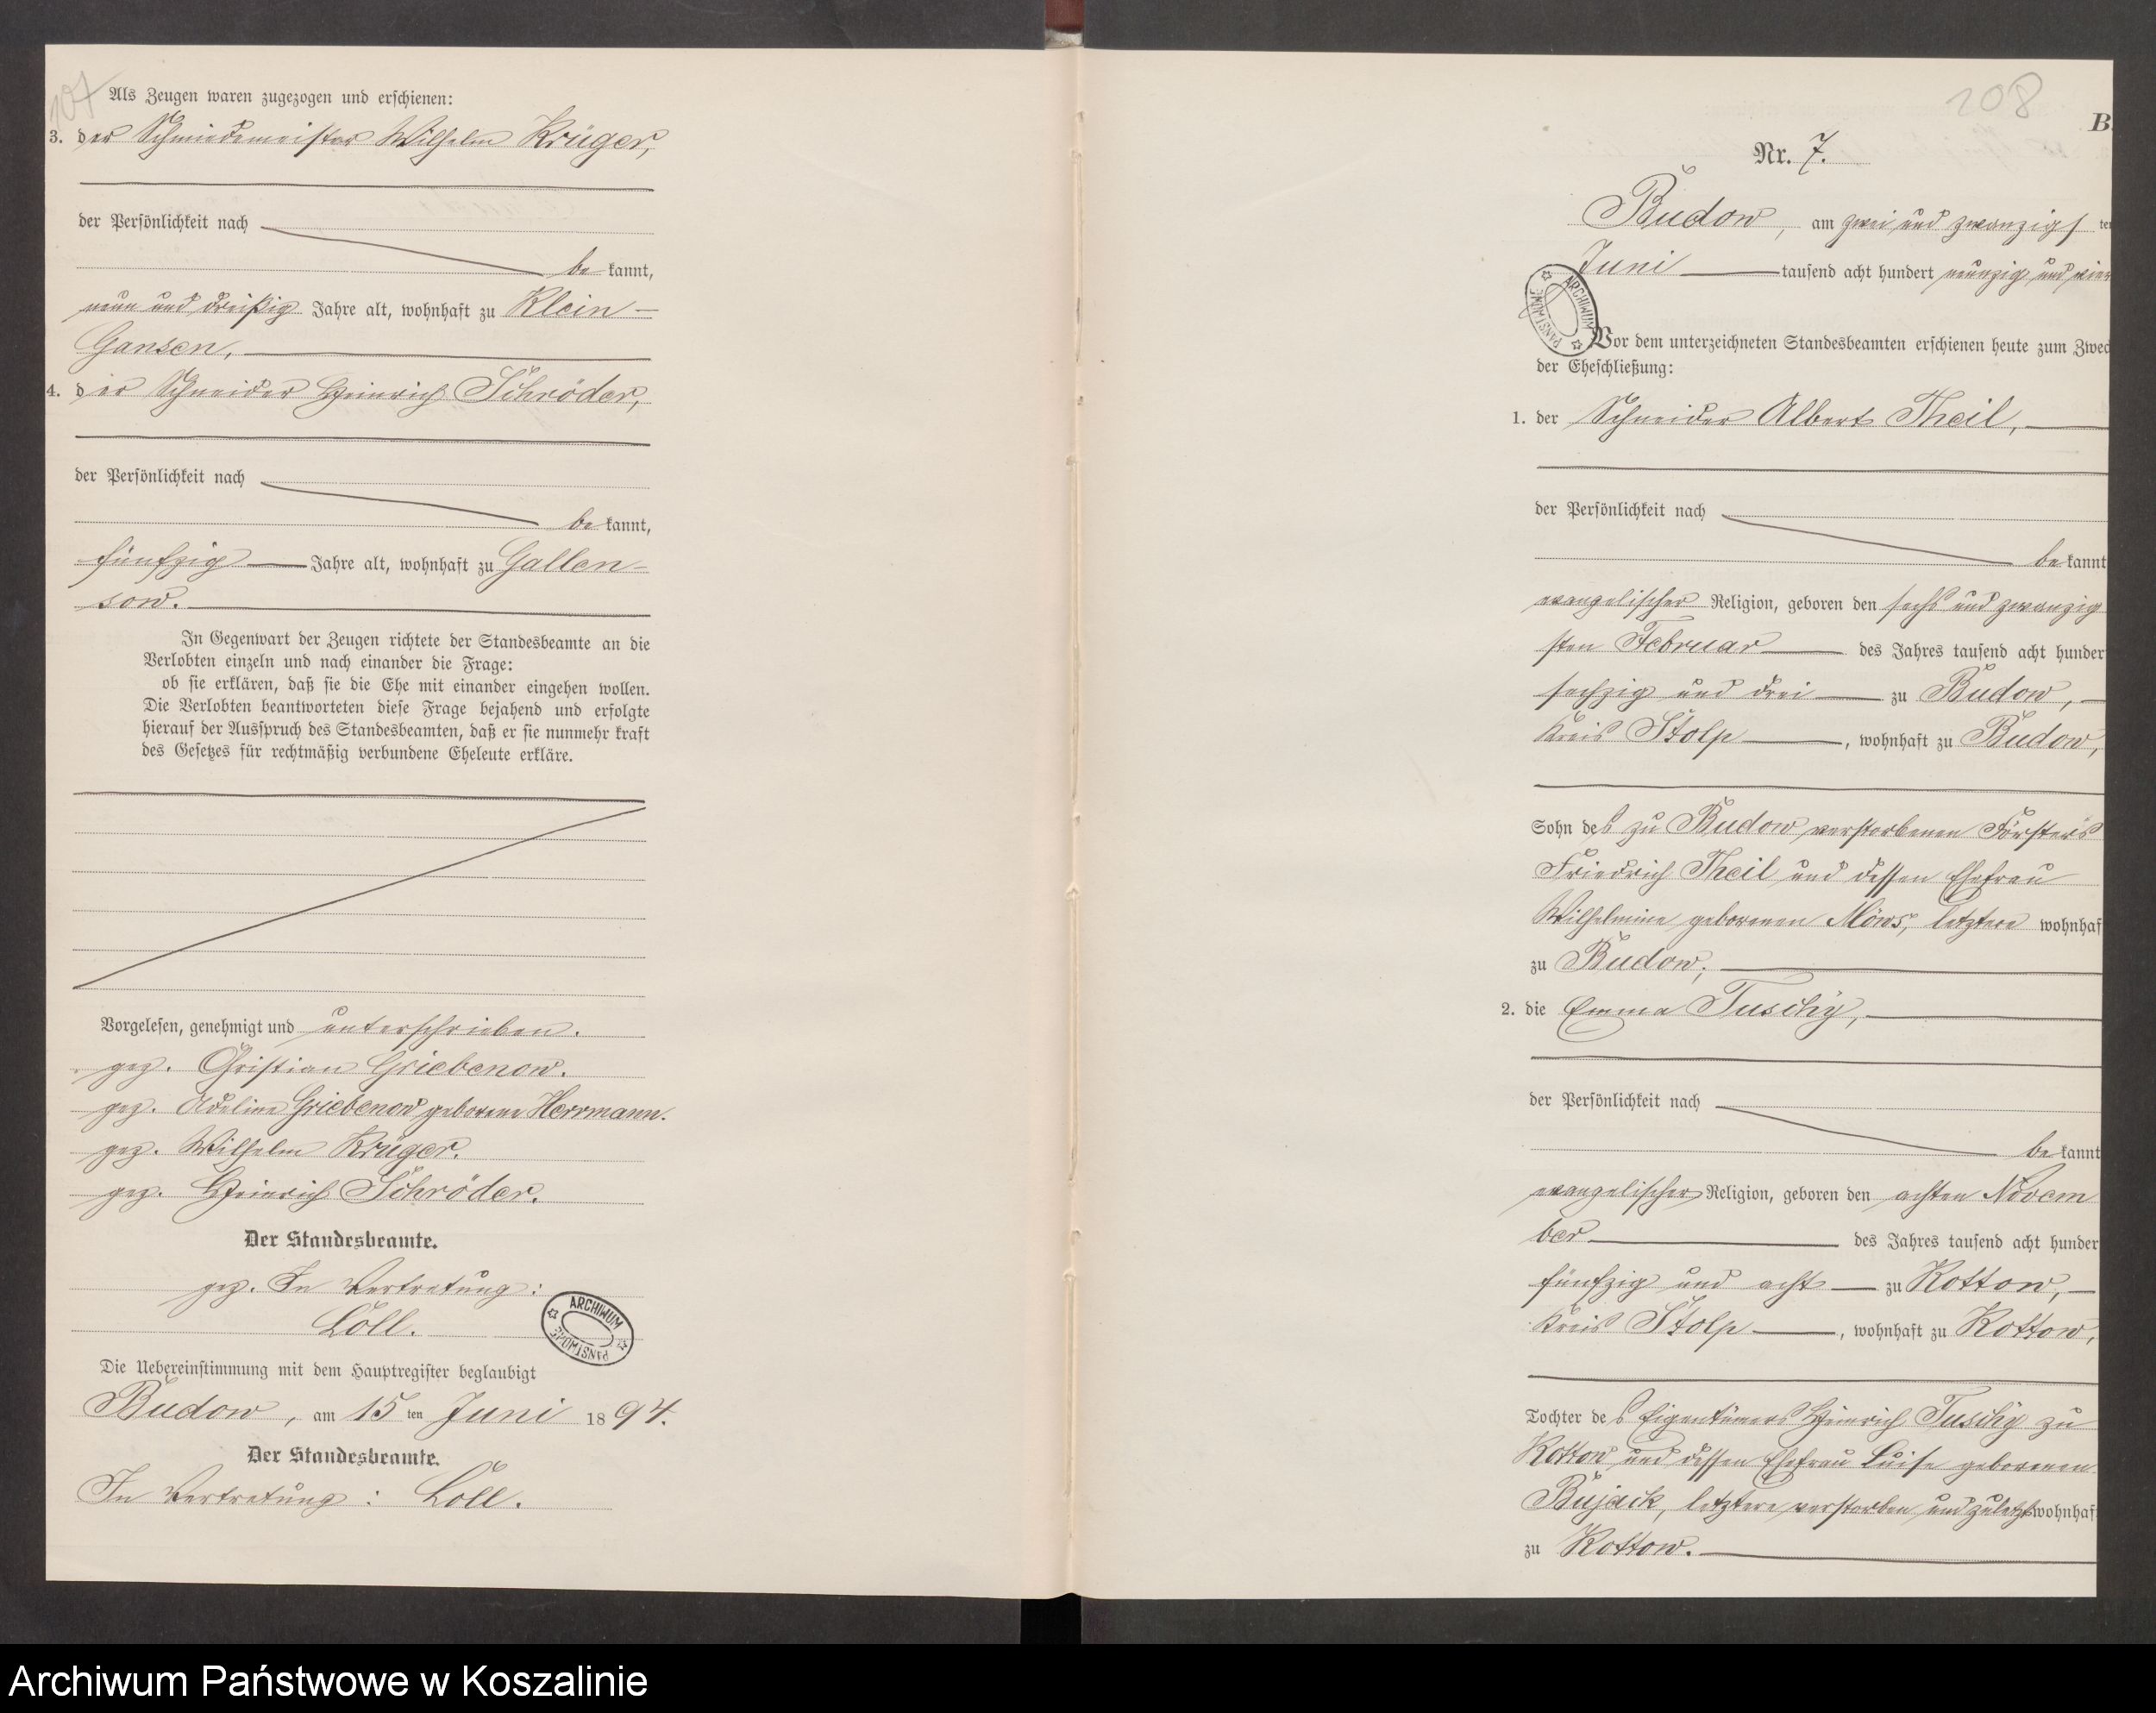 107
Als Zeugen waren zugezogen und erschienen:
3. der Schmiedemeister Wilhelm Krüger,
der Persönlichkeit nach
be kannt,
neun und dreißig Jahre alt, wohnhaft zu Klein-
Gansen,
4. der Schneider Heinrich Schröder,
der Persönlichkeit nach
be kannt,
fünfzig Jahre alt, wohnhaft zu Gallen-
sow.
In Gegenwart der Zeugen richtete der Standesbeamte an die
Verlobten einzeln und nach einander die Frage:
ob sie erklären, daß sie die Ehe mit einander eingehen wollen.
Die Verlobten beantworteten diese Frage bejahend und erfolgte
hierauf der Ausspruch des Standesbeamten, daß er sie nunmehr kraft
des Gesetzes für rechtmäßig verbundene Eheleute erkläre.
Vorgelesen, genehmigt und unterschrieben.
gez. Christian Griebenow.
gez. Adeline Griebenow geborene Herrmann.
gez. Wilhelm Krüger.
gez. Heinrich Schröder.
Der Standesbeamte.
gez. In Vertretung:
Löll.
ARCHIWUM PAŃSTWOWE
Die Uebereinstimmung mit dem Hauptregister beglaubigt
Budow, am 15 ten Juni 1894.
Der Standesbeamte.
In Vertretung: Löll.
208
B.
Nr. 7.
Budow, am zwei und zwanzigs ten
Juni tausend acht hundert neunzig und vier
ARCHIWUM PAŃSTWOWE
Vor dem unterzeichneten Standesbeamten erschienen heute zum Zwec
der Eheschließung:
1. der Schneider Albert Theil,
der Persönlichkeit nach
be kannt
evangelischer Religion, geboren den sechs und zwanzig
sten Februar des Jahres tausend acht hunder
sechzig und drei zu Budow,
Kreis Stolp, wohnhaft zu Budow,
Sohn des zu Budow verstorbenen Försters
Friedrich Theil und dessen Ehefrau
Wilhelmine geborenen Möws, letztere wohnhaf
zu Budow;
2. die Emma Tuschy,
der Persönlichkeit nach
be kannt
evangelischer Religion, geboren den achten Novem
ber des Jahres tausend acht hunder
fünfzig und acht zu Kottow,
Kreis Stolp, wohnhaft zu Kottow,
Tochter des Eigentümers Heinrich Tuschy zu
Kottow und dessen Ehefrau Luise geborenen
Bujack, letztere verstorben und zuletzt wohnhaf
zu Kottow.
Archiwum Państwowe w Koszalinie